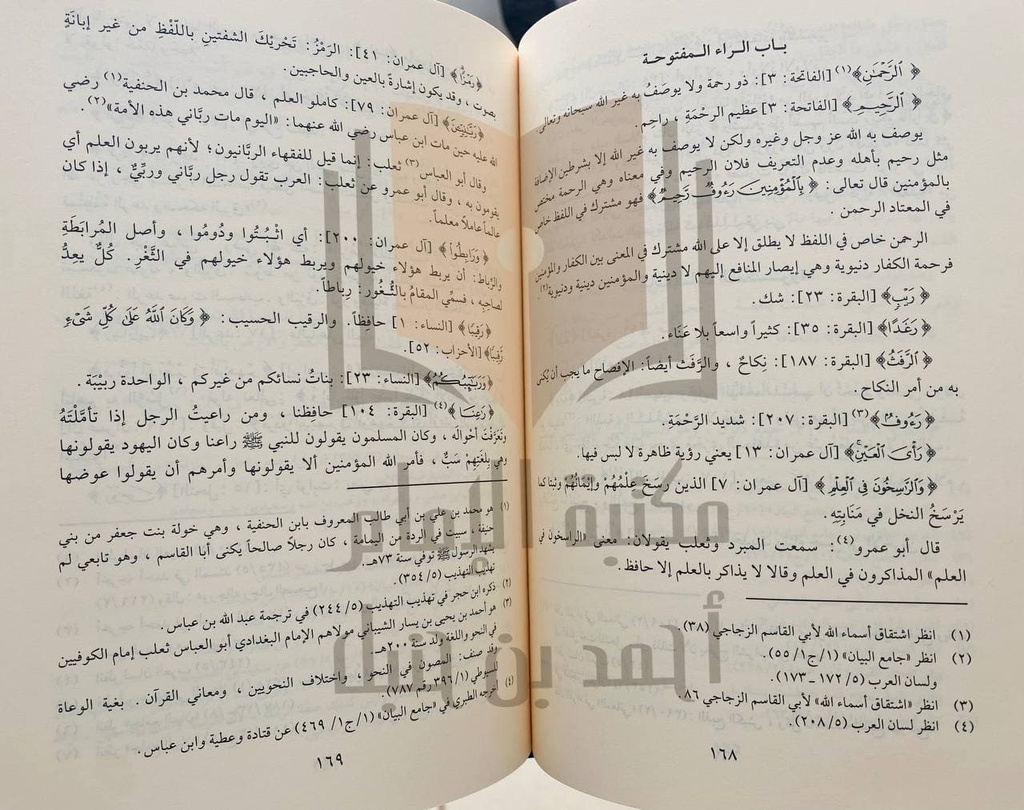 باب الراء المفتوحة
﴿ الرَّحْمَٰنِ﴾(١) [الفاتحة: ٣]: ذو رحمة ولا يوصَفُ به غير الله سبحانه وتعالى.
﴿ الرَّحِيمِ﴾ [الفاتحة: ٣] عظيم الرحْمَةِ ، راحِم.
يوصف به الله عز وجل وغيره ولكن لا يوصف به غير الله إلا بشرطين الإضافة
مثل رحيم بأهله وعدم التعريف فلان الرحيم وفي معناه وهي الرحمة مختص
بالمؤمنين قال تعالى: ﴿ بِالْمُؤْمِنِينَ رَءُوفٌ رَّحِيمٌ﴾ فهو مشترك في اللفظ خاص
في المعتاد الرحمن .
الرحمن خاص في اللفظ لا يطلق إلا على الله مشترك في المعنى بين الكفار والمؤمنين
فرحمة الكفار دنيوية وهي إيصار المنافع إليهم لا دينية والمؤمنين دينية ودنيوية(٢).
﴿ رَيْبٍ﴾ [البقرة: ٢٣]: شك.
﴿ رَغَدًا﴾ [البقرة: ٣٥]: كثيراً واسعاً بلا عَنَاء.
﴿ الرَّفَثُ﴾ [البقرة: ١٨٧]: نِكاحٌ ، والرَّفَث أيضاً: الإفصاح ما يجب أن يُكنى
به من أمر النكاح.
﴿ رَءُوفٌ﴾(٣) [البقرة: ٢٠٧]: شديد الرَّحْمَةِ .
﴿ رَأْىَ الْعَيْنِ﴾ [آل عمران: ١٣] يعني رؤية ظاهرة لا لبس فيها.
﴿ وَالرَّاسِخُونَ فِي الْعِلْمِ﴾ [آل عمران: ٧] الذين رسَخَ عِلْمُهُمْ وإيمَانُهُمْ وثبتا كما
يَرْسَخُ النخل في مَنَابِتِهِ.
قال أبو عمرو(٤): سمعت المبرد وثعلب يقولان: معنى «الراسخون في
العلم» المذاكرون في العلم وقالا لا يذاكر بالعلم إلا حافظ.
(١) انظر اشتقاق أسماء الله لأبي القاسم الزجاجي (٣٨).
(٢) انظر «جامع البيان» (١/ج١/ ٥٥).
ولسان العرب (٥/ ١٧٢-١٧٣).
(٣) انظر «اشتقاق أسماء الله» لأبي القاسم الزجاجي ٨٦.
(٤) انظر لسان العرب (٥/ ٢٠٨).
١٦٨
﴿رَمْزًا﴾ [آل عمران: ٤١]: الرَمْزُ: تَحْريْكَ الشفتينِ باللّفْظِ من غير إبانَةٍ
بصوت ، وقد يكون إشارةً بالعين والحاجبين.
﴿رَبَّانِيِّينَ﴾ [آل عمران: ٧٩]: كاملو العلم ، قال محمد بن الحنفية(١) رضي
الله عليه حين مات ابن عباس رضي الله عنهما: «اليوم مات ربَّاني هذه الأمة»(٢).
وقال أبو العباس(٣) ثعلب: إنما قيل للفقهاء الربَّانيون؛ لأنهم يربون العلم أي
يقومون به ، وقال أبو عمرو عن ثعلب: العرب تقول رجل ربَّاني وربِّيٌّ ، إذا كان
عالماً عاملاً معلماً.
﴿وَرَابِطُوا﴾ [آل عمران: ٢٠٠]: أي اثْبُتُوا ودُومُوا ، وأصل المُرابَطَةِ
والرَّباط: أن يربط هؤلاء خيولهم ويربط هؤلاء خيولهم في الثَّغْرِ. كُلٌّ يعِدُّ
لصاحِبِه ، فسمِّي المقامُ بالثُّغُور: رِباطاً.
﴿رَقِيبًا﴾ [النساء: ١] حافِظاً. والرقيب الحسيب: ﴿ وَكَانَ اللَّهُ عَلَىٰ كُلِّ شَىْءٍ
رَّقِيبًا﴾ [الأحزاب: ٥٢].
﴿وَرَبَائِبُكُمُ﴾ [النساء: ٢٣]: بناتُ نسائكم من غيركم ، الواحدة ربيْبَة .
﴿رَاعِنَا﴾(٤) [البقرة: ١٠٤] حافِظنا ، ومن راعيتُ الرجل إذا تأمَّلْتَهُ
وتَعَرَّفْتَ أحْوالَه ، وكان المسلمون يقولون للنبي ﷺ راعنا وكان اليهود يقولونها
وهي بِلُغَتِهِمْ سَبٌّ ، فأمر الله المؤمنين ألا يقولونها وأمرهم أن يقولوا عوضها
(١) هو محمد بن علي بن أبي طالب المعروف بابن الحنفية ، وهي خولة بنت جعفر من بني
حنفة ، سبيت في الردة من اليمامة ، كان رجلاً صالحاً يكنى أبا القاسم ، وهو تابعي لم
يشهد الرسول ﷺ توفي سنة ٧٣هـ.
تهذيب التهذيب (٥/ ٣٥٤).
(٢) ذكره ابن حجر في تهذيب التهذيب (٥/ ٢٤٤) في ترجمة عبد الله بن عباس.
(٣) هو أحمد بن يحيى بن يسار الشيباني مولاهم الإمام البغدادي أبو العباس ثعلب إمام الكوفيين
في النحو واللغة ولد سنة ٢٠٠هـ.
وقد صنف: المصون في النحو ، واختلاف النحويين ، ومعاني القرآن . بغية الوعاة
للسيوطي (١/ ٣٩٦ رقم ٧٨٧).
(٤) خرجه الطبري في «جامع البيان» (١/ج١/ ٤٦٩) عن قتادة وعطية وابن عباس.
١٦٩
مكتبة الإمام
أحمد بن حنبل